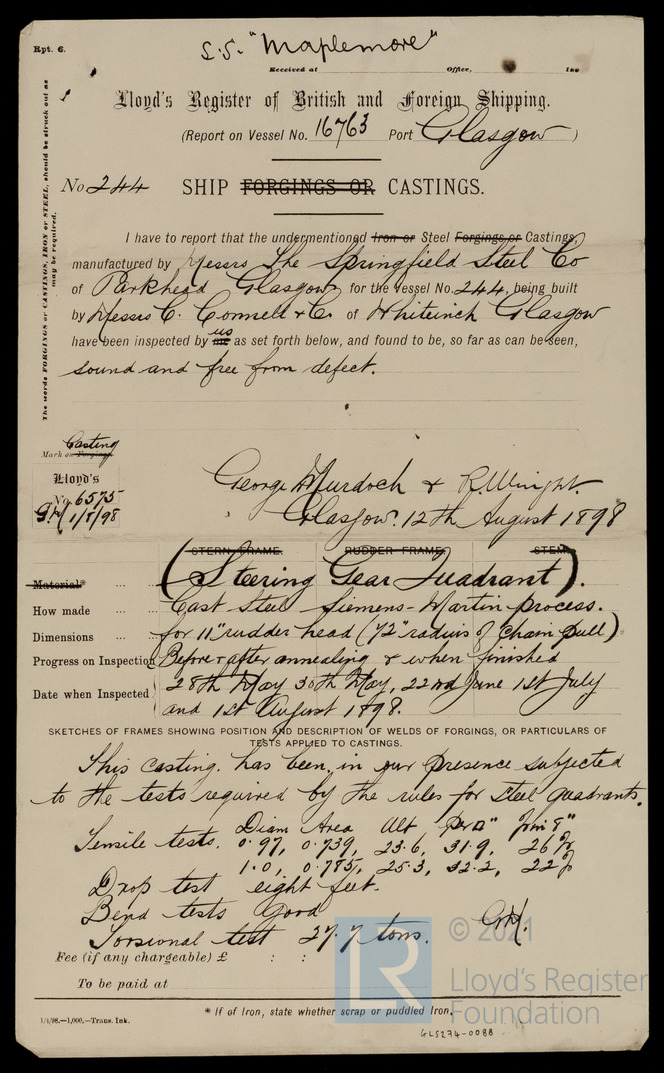 Rpt. 6.
S.S. "Maplemore"
Received at Office, 189
Lloyd's Register of British and Foreign Shipping.
(Report on Vessel No. 16763 Port Glasgow )
No 244 SHIP FORGINGS OR CASTINGS.
The words FORGINGS or CASTINGS, IRON or STEEL, should be struck out as
may be required.
I have to report that the undermentioned Iron or Steel Forgings or Castings,
manufactured by Messrs The Springfield Steel Co
of Parkhead Glasgow for the Vessel No. 244, being built
by Messrs C. Connell & Co. of Whiteinch Glasgow
have been inspected by me us as set forth below, and found to be, so far as can be seen,
sound and free from defect.
Casting
Mark on Forging
Lloyd's
No 6575
GM 1/8/98
George Murdoch & R. Wright.
Glasgow. 12th August 1898
STERN FRAME. RUDDER FRAME. STEM
Material* (Steering Gear Quadrant).
How made Cast Steel Siemens-Martin process.
Dimensions for 11" rudder head (72" radius of chain pull)
Progress on Inspection Before & after annealing & when finished
Date when Inspected 28th May 30th May, 22nd June 1st July
and 1st August 1898.
SKETCHES OF FRAMES SHOWING POSITION AND DESCRIPTION OF WELDS OF FORGINGS, OR PARTICULARS OF
TESTS APPLIED TO CASTINGS.
This casting. has been, in our presence subjected
to the tests required by the rules for Steel quadrants.
Diam Area Ult Per □" in 8"
Tensile tests. 0.97, 0.739, 23.6, 31.9, 26%
1.0, 0.785, 25.3, 32.2, 22%
Drop test eight feet.
Bend tests Good
Torsional test 27.7 tons. GM.
Fee (if any chargeable) £ : :
To be paid at
* If of Iron, state whether scrap or puddled Iron.
1/1/98.—1,000.—Trans. Ink.
GLS274-0088
© 2021
LR
Lloyd's Register
Foundation